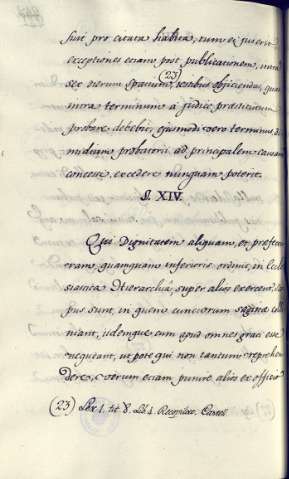 fuit pro citata habita, tum ei jus erit
exceptiones etiam post publicationem, intra
sex dierum spatium, (23) testibus objiciendas, quas
intra terminum à judice præstitutum
probare debebit, ejusmodi vero terminus di-
midium probatorii ad principalem causam
concessi, excedere nunquam poterit.
§. XIV.
Qui Dignitatem aliquam, et præfect
eram, quamquam inferioris ordinis, in Eccle
siastica Hierarchia, super alios exercent, 
pus sunt, in quem cunctorum sagitæ coll
niant, iidemque cum apud omnes grati esse
nequeant, ut pote qui non tantum reprehen
dere, verum etiam punire alios ex officio
(23) Lex 1. tit 8. Lib 4. Recopilac. Castel.